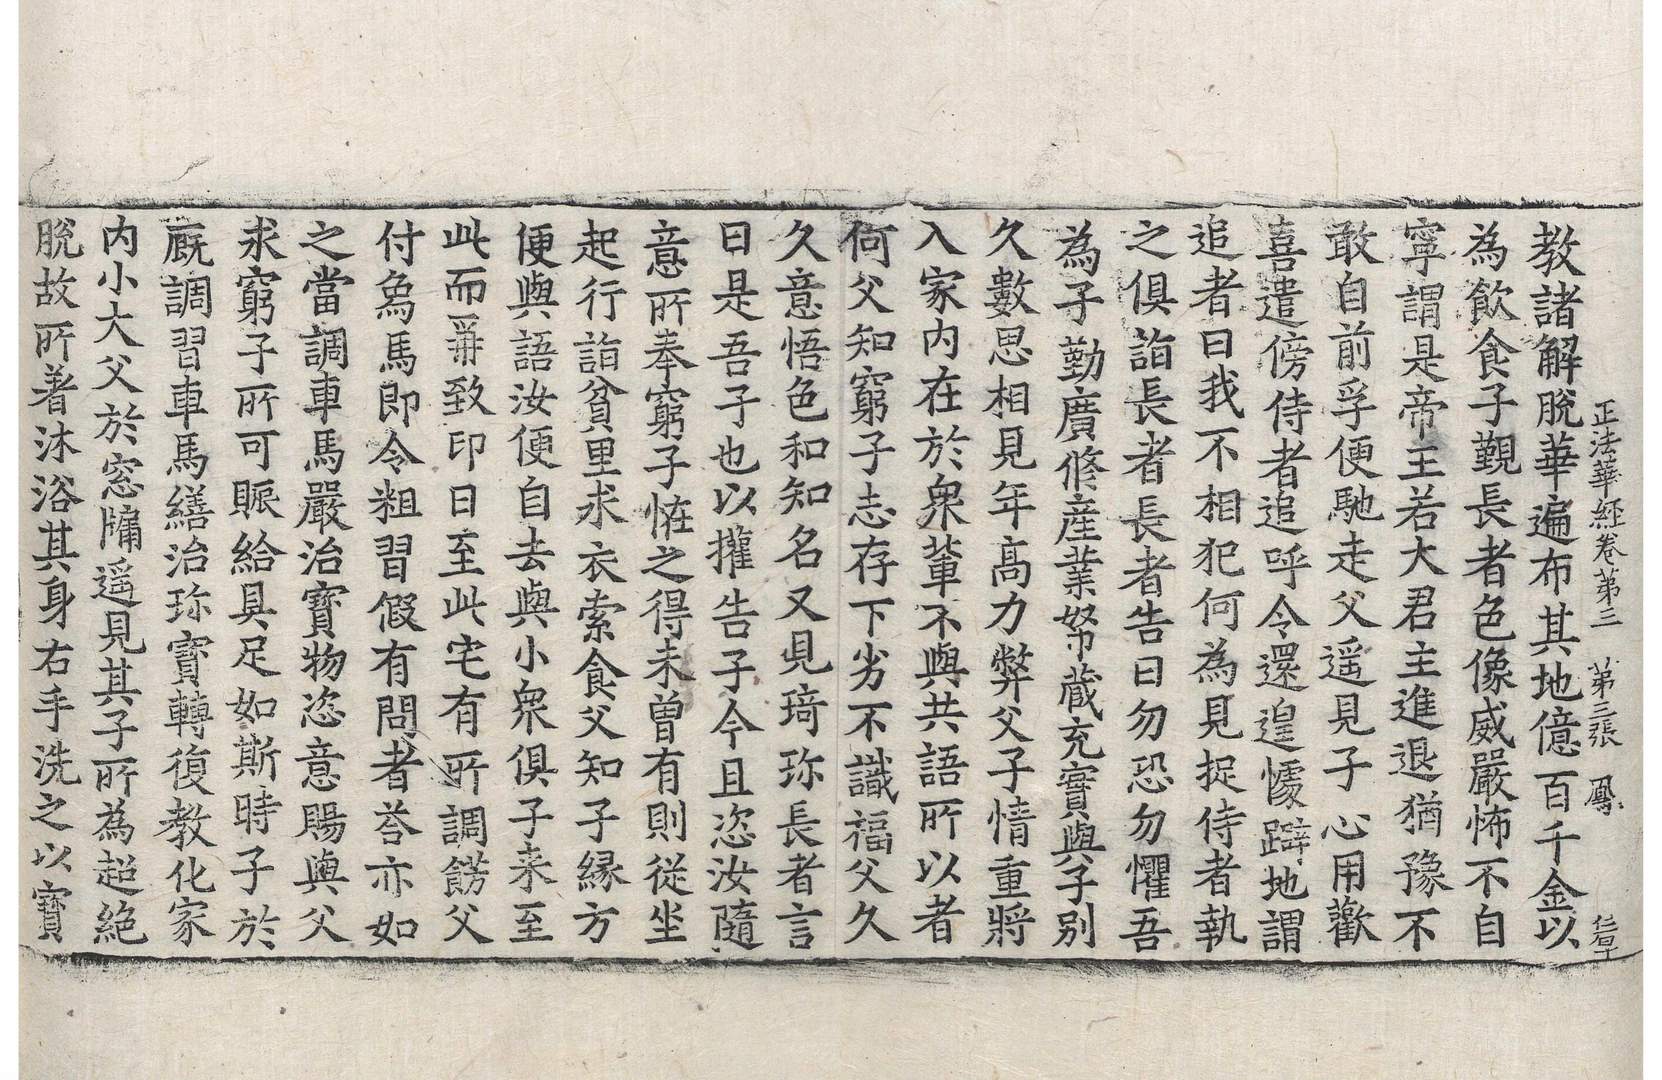 正法華経卷第三 第三張 鳳
教諸解脫華遍布其地億百千金以
為飲食子覲長者色像威嚴怖不自
寧謂是帝王若大君主進退猶豫不
敢自前孚便馳走父遥見子心用歡
喜遣傍侍者追呼令還遑懅躃地謂
追者曰我不相犯何為見捉侍者執
之俱詣長者長者告曰勿恐勿懼吾
為子勤廣脩産業帑藏充實與子別
久數思相見年高力弊父子情重將
入家内在於衆輩不與共語所以者
何父知窮子志存下劣不識福父久
久意悟色和知名又見琦珎長者言
曰是吾子也以權告子今且恣汝隨
意所奉窮子恠之得未曾有則從坐
起行詣貧里求衣索食父知子縁方
便與語汝便自去與小衆俱子来至
此而再致印曰至此宅有所調餝父
付象馬即令粗習假有問者荅亦如
之當調車馬嚴治寶物恣意賜與父
求窮子所可賑給具足如斯時子於
厩調習車馬繕治珎寶轉復教化家
内小大父於窓牖遥見其子所為超絶
脫故所著沐浴其身右手洗之以寶